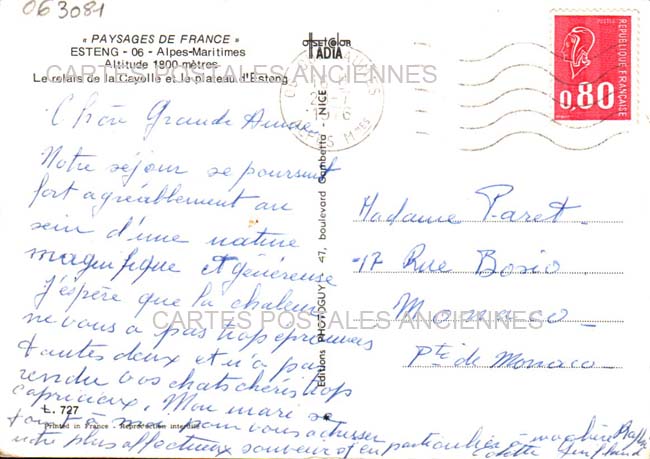 063081
« PAYSAGES DE FRANCE »
ESTENG - 06 - Alpes-Maritimes
Altitude 1800 mètres
Le relais de la Cayolle et le plateau d'Esteng
OFFSET COLOR
TADIA
CARTES POSTALES ANCIENNES
REPUBLIQUE FRANÇAISE
POSTES
0,80
ALPES Mmes
Chère Grande Amie
Notre séjour se poursuit
fort agréablement au
sein d'une nature
magnifique et généreuse
J'espère que la chaleur
ne vous a pas trop éprouvées
toutes deux et n'a pas
rendu vos chats chéris trop
capricieux. Mon mari se
joint à moi pour vous adresser
notre plus affectueux souvenir et en particulier à
Editions PHOTOGUY - 47, boulevard Gambetta - NICE
Madame Paret
17 Rue Bosio
Monaco
Pté de Monaco
CARTES POSTALES ANCIENNES
L. 727
Printed in France - Reproduction interdite